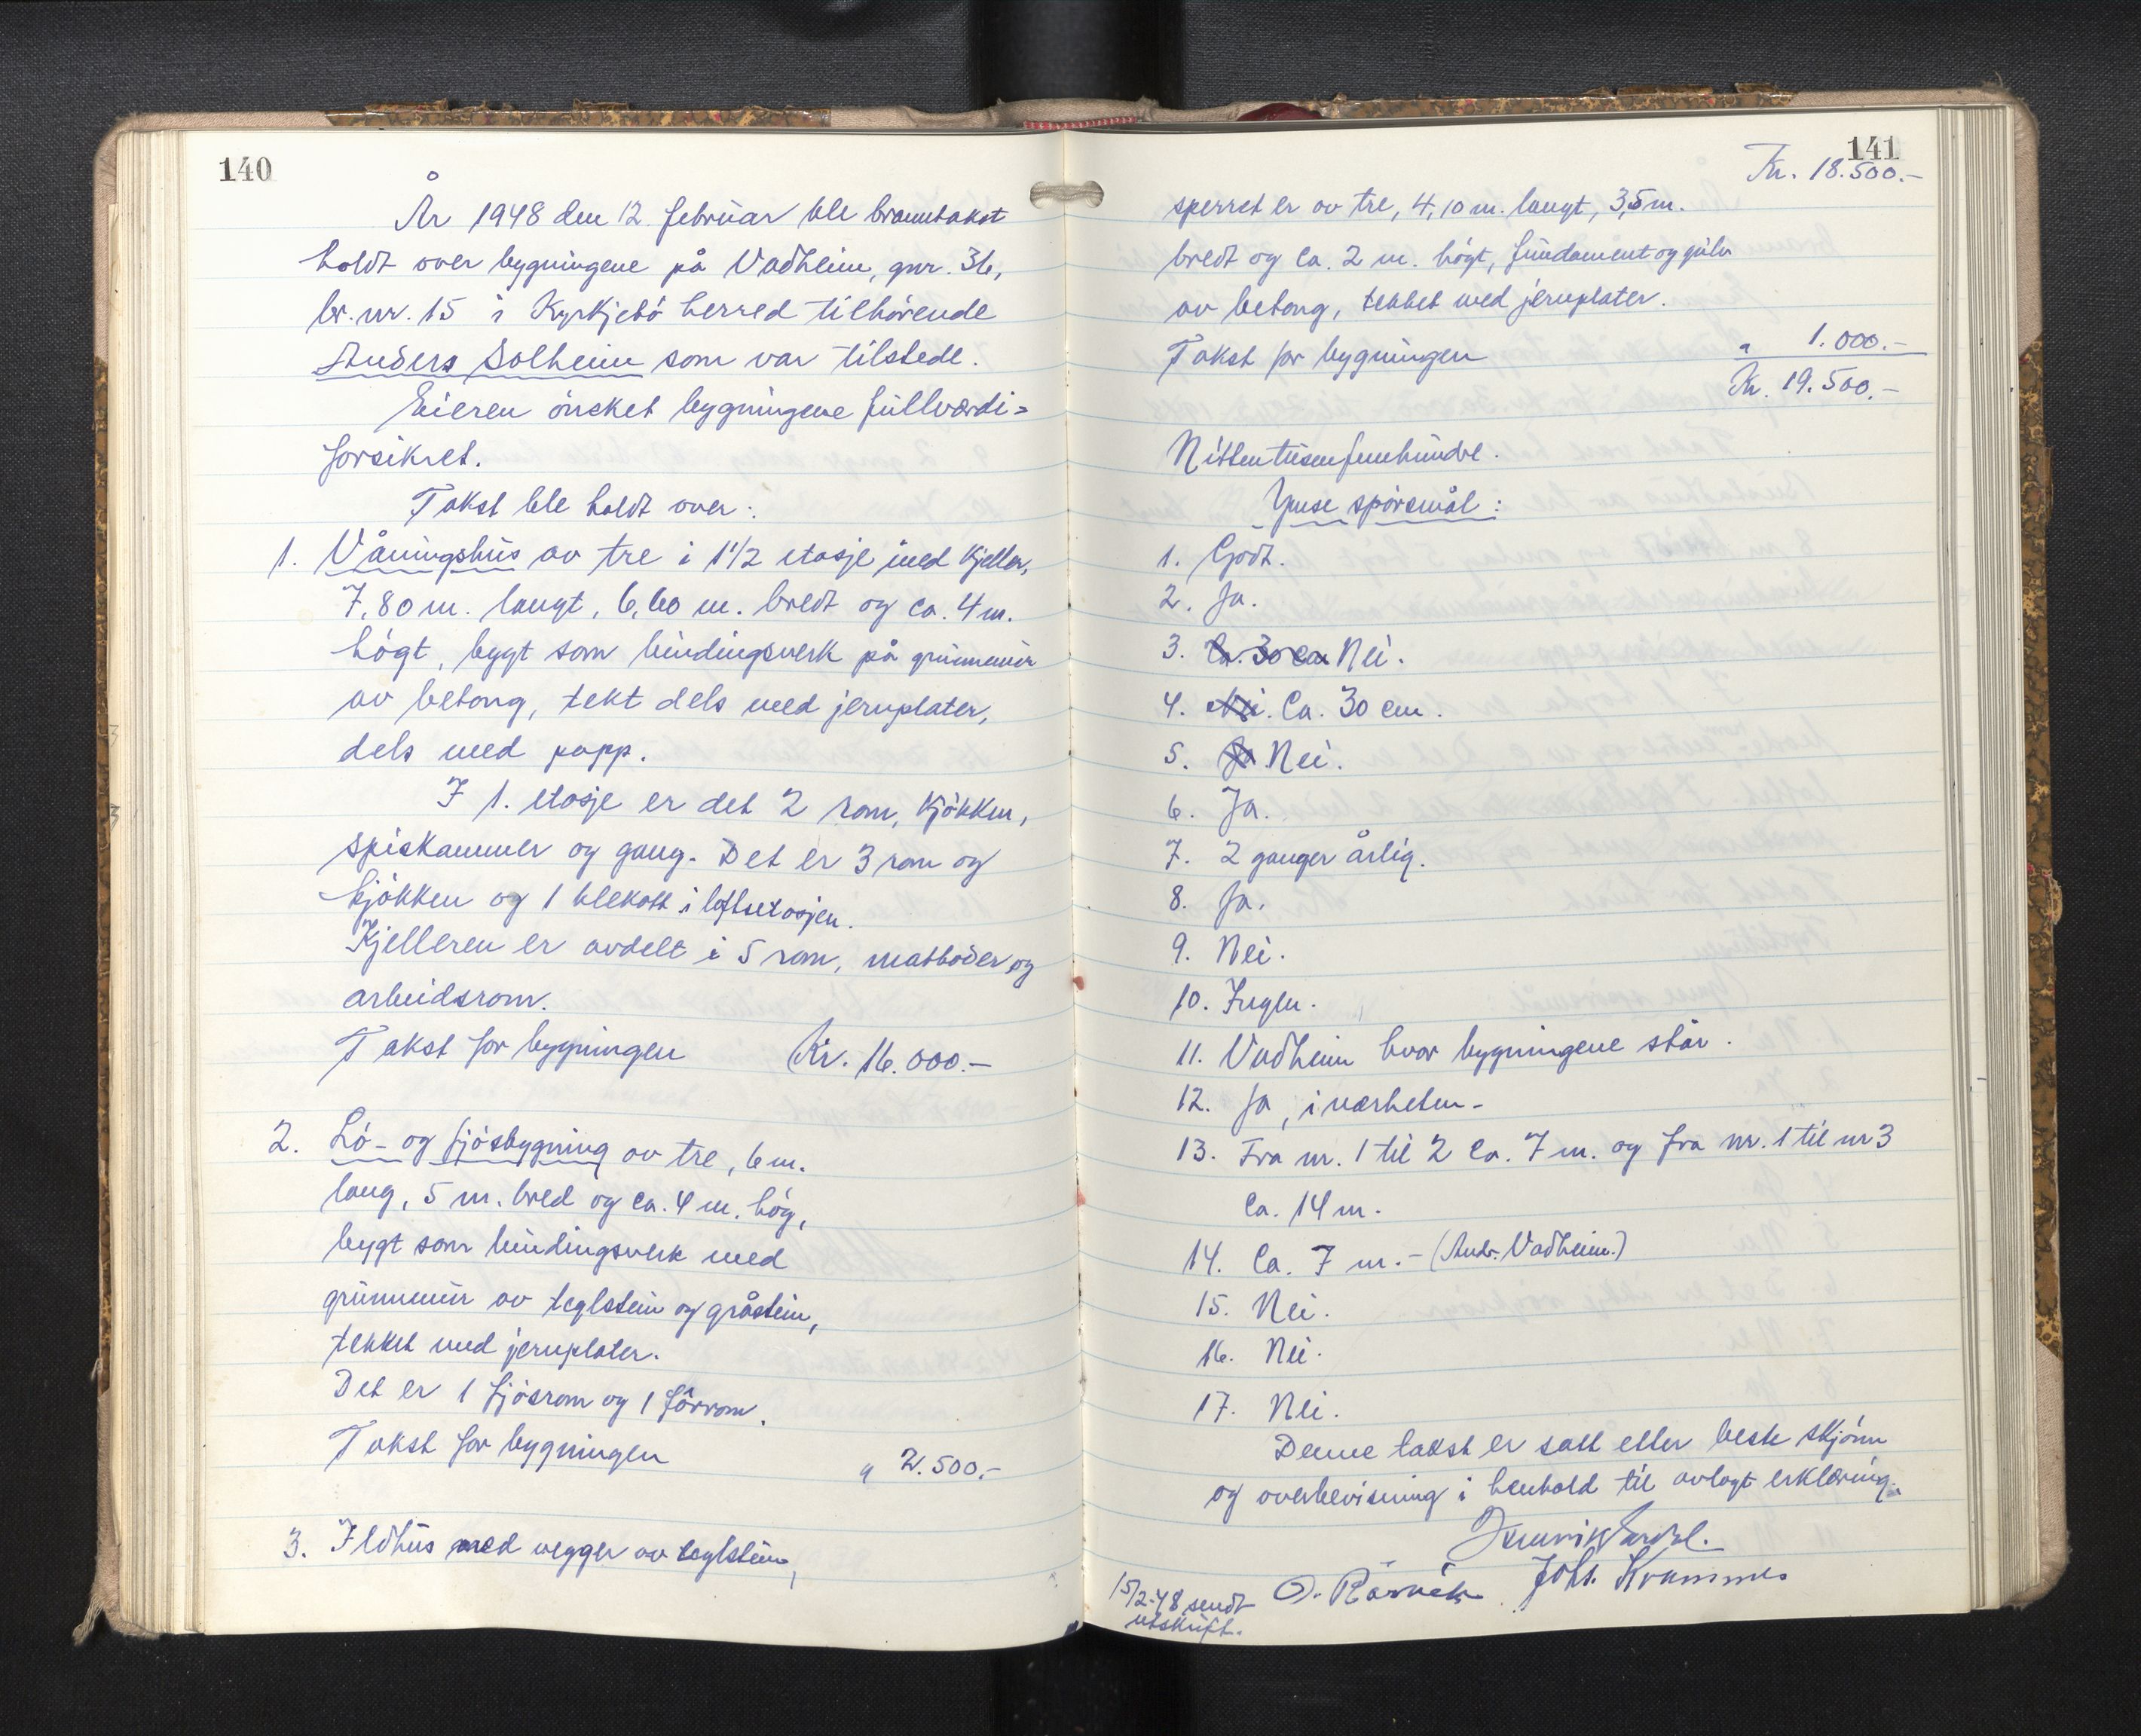 140
År 1948 den 12. februar ble branntakst
holdt over bygningene på Vadheim, gnr. 36,
br.nr. 15 i Kyrkjebö herred tilhörende
Anders Solheim som var tilstede.
Eieren önsket bygningene fullverdi-
forsikret.
Takst ble holdt over:
1. Våningshus av tre i 1 1/2 etasje med kjeller,
7,80 m. langt, 6,60 m. bredt og ca. 4 m.
högt, bygt som bindingsverk på grunnmur
av betong, tekt dels med jernplater,
dels med papp.
I 1. etasje er det 2 rom, kjökken,
spiskammer og gang. Det er 3 rom og
kjökken og 1 klekott i loftsetasjen.
Kjelleren er avdelt i 5 rom, matboder og
arbeidsrom.
Takst for bygningen Kr. 16.000.-
2. Lö- og fjösbygning av tre, 6 m.
lang, 5 m. bred og ca. 4 m. hög,
bygt som bindingsverk med
grunnmur av teglstein og gråstein,
tekket med jernplater.
Det er 1 fjösrom og 1 fôrrom.
Takst for bygningen " 2.500.-
3. Ildhus med vegger av teglstein,
141
Kr. 18.500.-
sperret er av tre, 4,10 m. langt, 3,5 m.
bredt og ca. 2 m. högt, fundament og gulv
av betong, tekket med jernplater.
Takst for bygningen " 1.000.-
Kr. 19.500.-
Nittentusenfemhundre.
Ymse spörsmål:
1. Godt.
2. Ja.
3. Ca. 30 cm Nei.
4. Nei. Ca. 30 cm.
5. Ja Nei.
6. Ja.
7. 2 ganger årlig.
8. Ja.
9. Nei.
10. Ingen.
11. Vadheim hvor bygningene står.
12. Ja, i nærheten-
13. Fra nr. 1 til 2 ca. 7 m. og fra nr. 1 til nr 3
ca. 14 m.
14. Ca. 7 m. - (Andr. Vadheim.)
15. Nei.
16. Nei.
17. Nei.
Denne takst er satt etter beste skjönn
og overbevisning i henhold til avlagt erklæring.
Johs. Kvammes
15/2-48 sendt
utskrift.